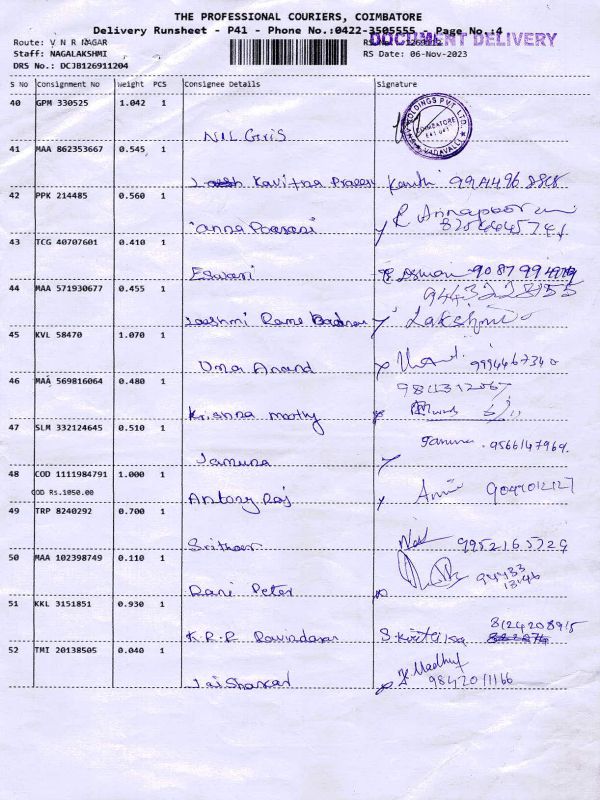 THE PROFESSIONAL COURIERS, COIMBATORE
Delivery Runsheet - P41 - Phone No.:0422-3505555 Page No.:4
Route: V N R NAGAR
DOCUMENT DELIVERY
Staff: NAGALAKSHMI RS Date: 06-Nov-2023
DRS No.: DCJB126911204
S No Consignment No Weight PCS Consignee Details Signature
40 GPM 330525 1.042 1
HOLDINGS PVT. LTD.
COIMBATORE
VADAVALLI
Nil Giris
41 MAA 862353667 0.545 1
Kavitha 9914496
42 PPK 214485 0.560 1
R Annapoorani
anna Poorani
43 TCG 40707601 0.410 1
Eswari 9087994979
44 MAA 571930677 0.455 1
9443228155
Lakshmi Rame Lakshmi
45 KVL 58470 1.070 1
Uma Anand 9994467340
46 MAA 569816064 0.480 1
984312067
Krishna moothy
47 SLM 332124645 0.510 1
Jamuna 9566147969.
Jamuna
48 COD 1111984791 1.000 1
COD Rs.1050.00
Antony Raj
49 TRP 8240292 0.700 1
9952165529
50 MAA 102398749 0.110 1
94433
13146
Rani Peter
51 KKL 3151851 0.930 1
8124208915
K.R.R
52 TMI 20138505 0.040 1
Jai Shankar 9842011166